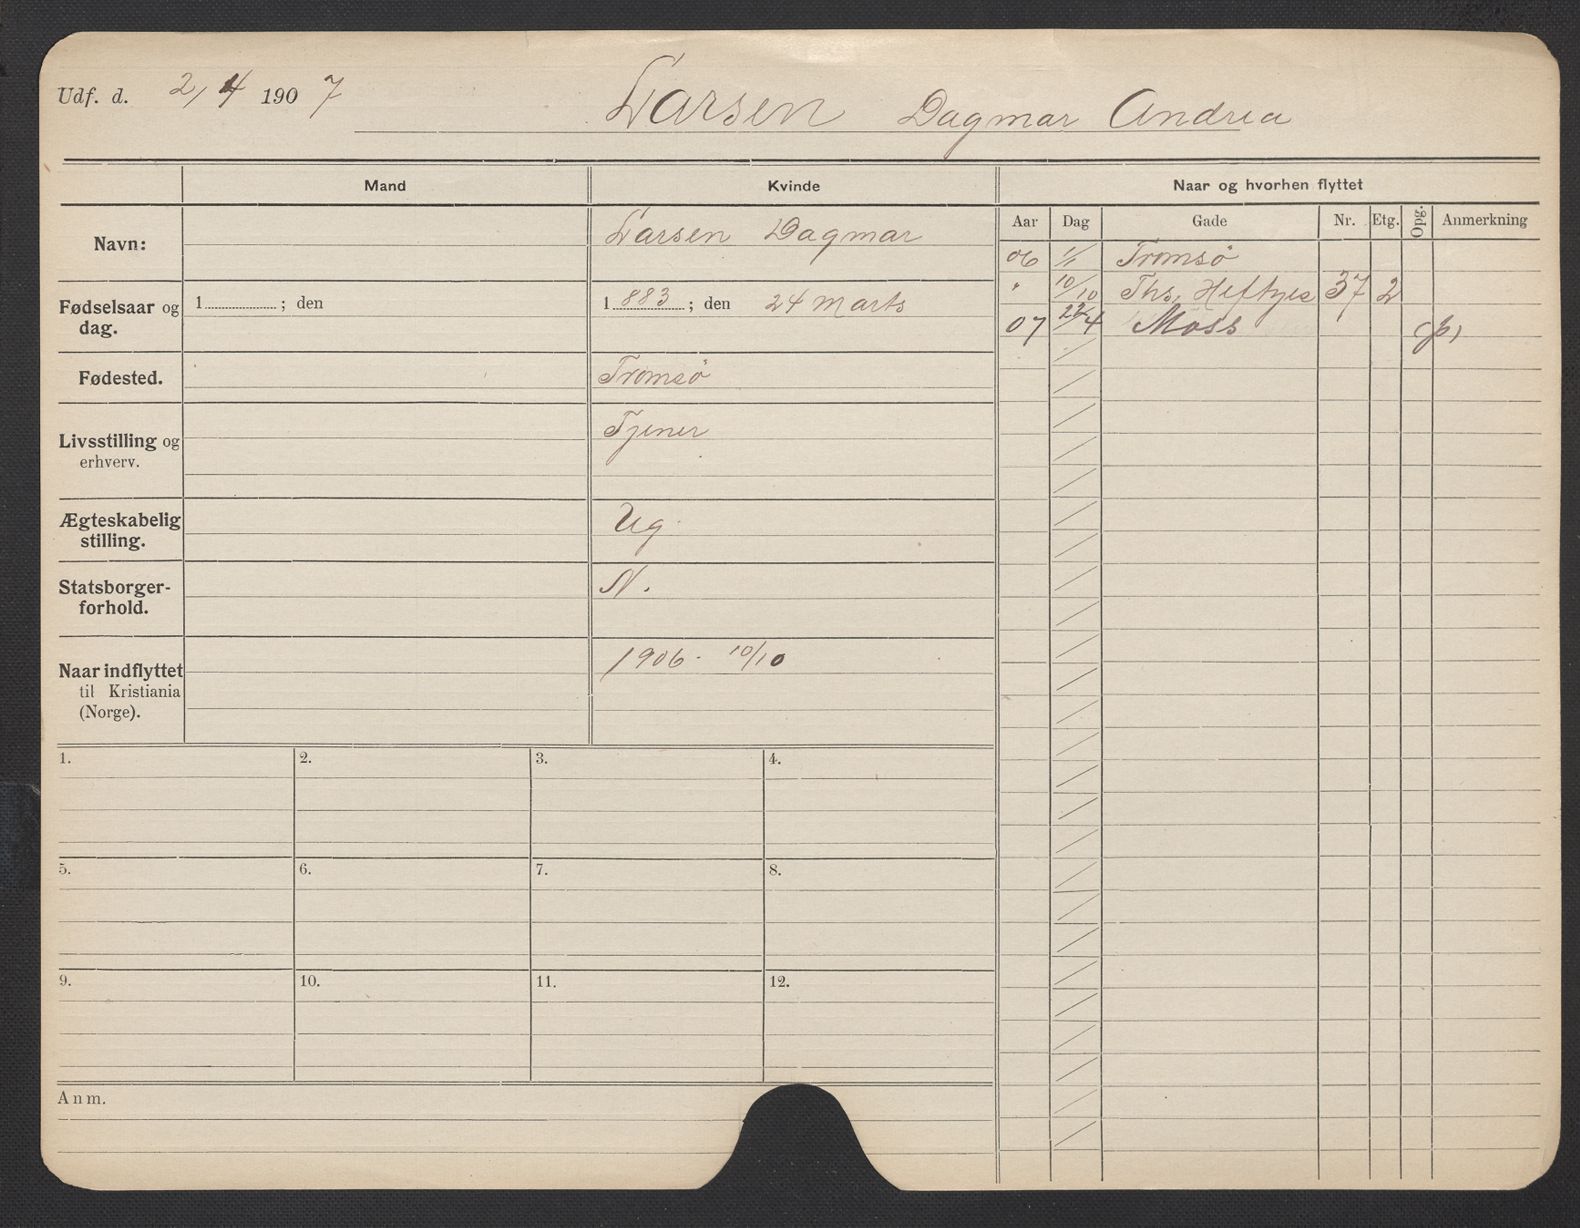 Udf. d. 2/4 1907
Larsen Dagmar Andrea
Mand Kvinde Naar og hvorhen flyttet
Aar Dag Gade Nr. Etg. Opg. Anmerkning
Navn: Larsen Dagmar
Fødselsaar og dag. 1 ; den 1883; den 24 Marts
Fødested. Tromsö
Livsstilling og erhverv. Tjener
Ægteskabelig stilling. Ug.
Statsborger-forhold. N.
Naar indflyttet til Kristiania (Norge). 1906. 10/10
06 1/1 Tromsö
" 10/10 Ths. Heftyes 37 2
07 22/4 Moss
1. 2. 3. 4.
5. 6. 7. 8.
9. 10. 11. 12.
Anm.